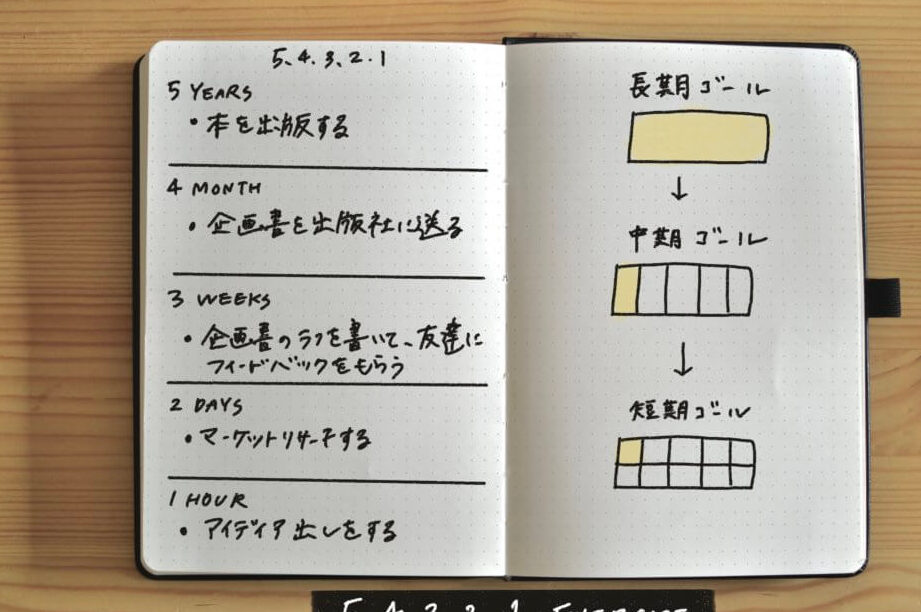 5.4.3.2.1
5 YEARS
・本を出版する
4 MONTH
・企画書を出版社に送る
3 WEEKS
・企画書のラフを書いて、友達に
フィードバックをもらう
2 DAYS
・マーケットリサーチする
1 HOUR
・アイディア出しをする
長期ゴール
↓
中期ゴール
↓
短期ゴール